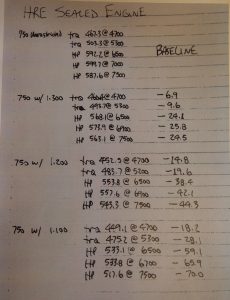 HRE SEALED ENGINE
BASELINE
750 Unrestricted trq 467.3@4700
trq 503.3@5300
HP 592.2@6500
HP 599.7@7000
HP 587.6@7500
750 w/ 1.300 trq @4700 -6.9
trq 493.7@5300 -9.6
HP 568.1@6500 -24.1
HP 573.9@6900 -25.8
HP 563.1@7500 -24.5
750 w/ 1.200 trq 452.5@4700 -14.8
trq 483.7@5200 -19.6
HP 553.8@6500 -38.4
HP 557.6@6900 -42.1
HP 543.3@7500 -44.3
750 w/ 1.100 trq 449.1@4700 -18.2
trq 475.2@5300 -28.1
HP 533.1@6500 -59.1
HP 533.8@6700 -65.9
HP 517.6@7500 -70.0